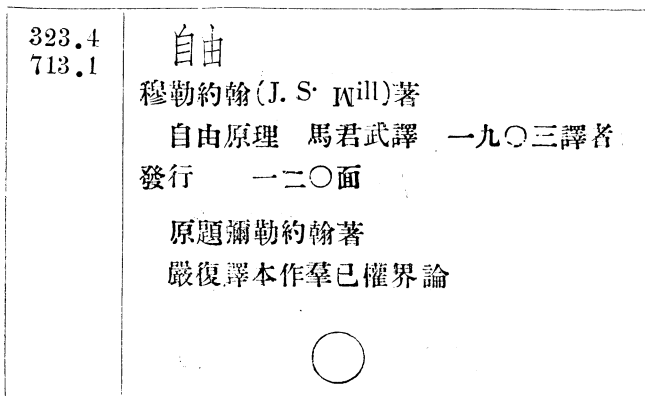 323.4
713.1
自由
穆勒約翰(J. S. Mill)著
自由原理　馬君武譯　一九〇三譯者
發行　一二〇面
原題彌勒約翰著
嚴復譯本作羣已權界論